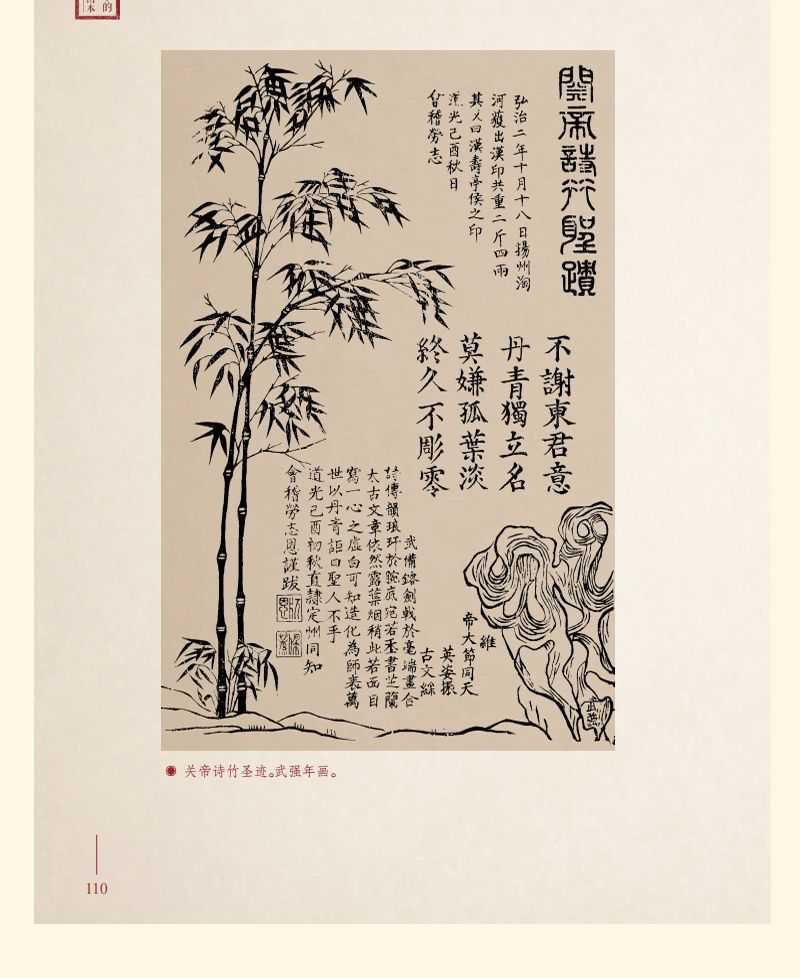 的
本
關帝詩竹聖蹟
弘治二年十月十八日揚州淘
河獲出漢印共重二斤四兩
其文曰漢壽亭侯之印
道光己酉秋日
會稽勞志
不謝東君意
丹青獨立名
莫嫌孤葉淡
終久不彫零
維
帝大節同天
英姿振
古文綵
武備鎔劍戟於毫端畫合
詩傳韻琅玕於腕底宛若丞書芝蘭
太古文章依然露葉烟稍此若面目
寫一心之虛白可知造化為師表萬
世以丹青詎曰聖人不乎
道光己酉初秋直隸定州同知
會稽勞志恩謹跋
武強
关帝诗竹圣迹。武强年画。
110